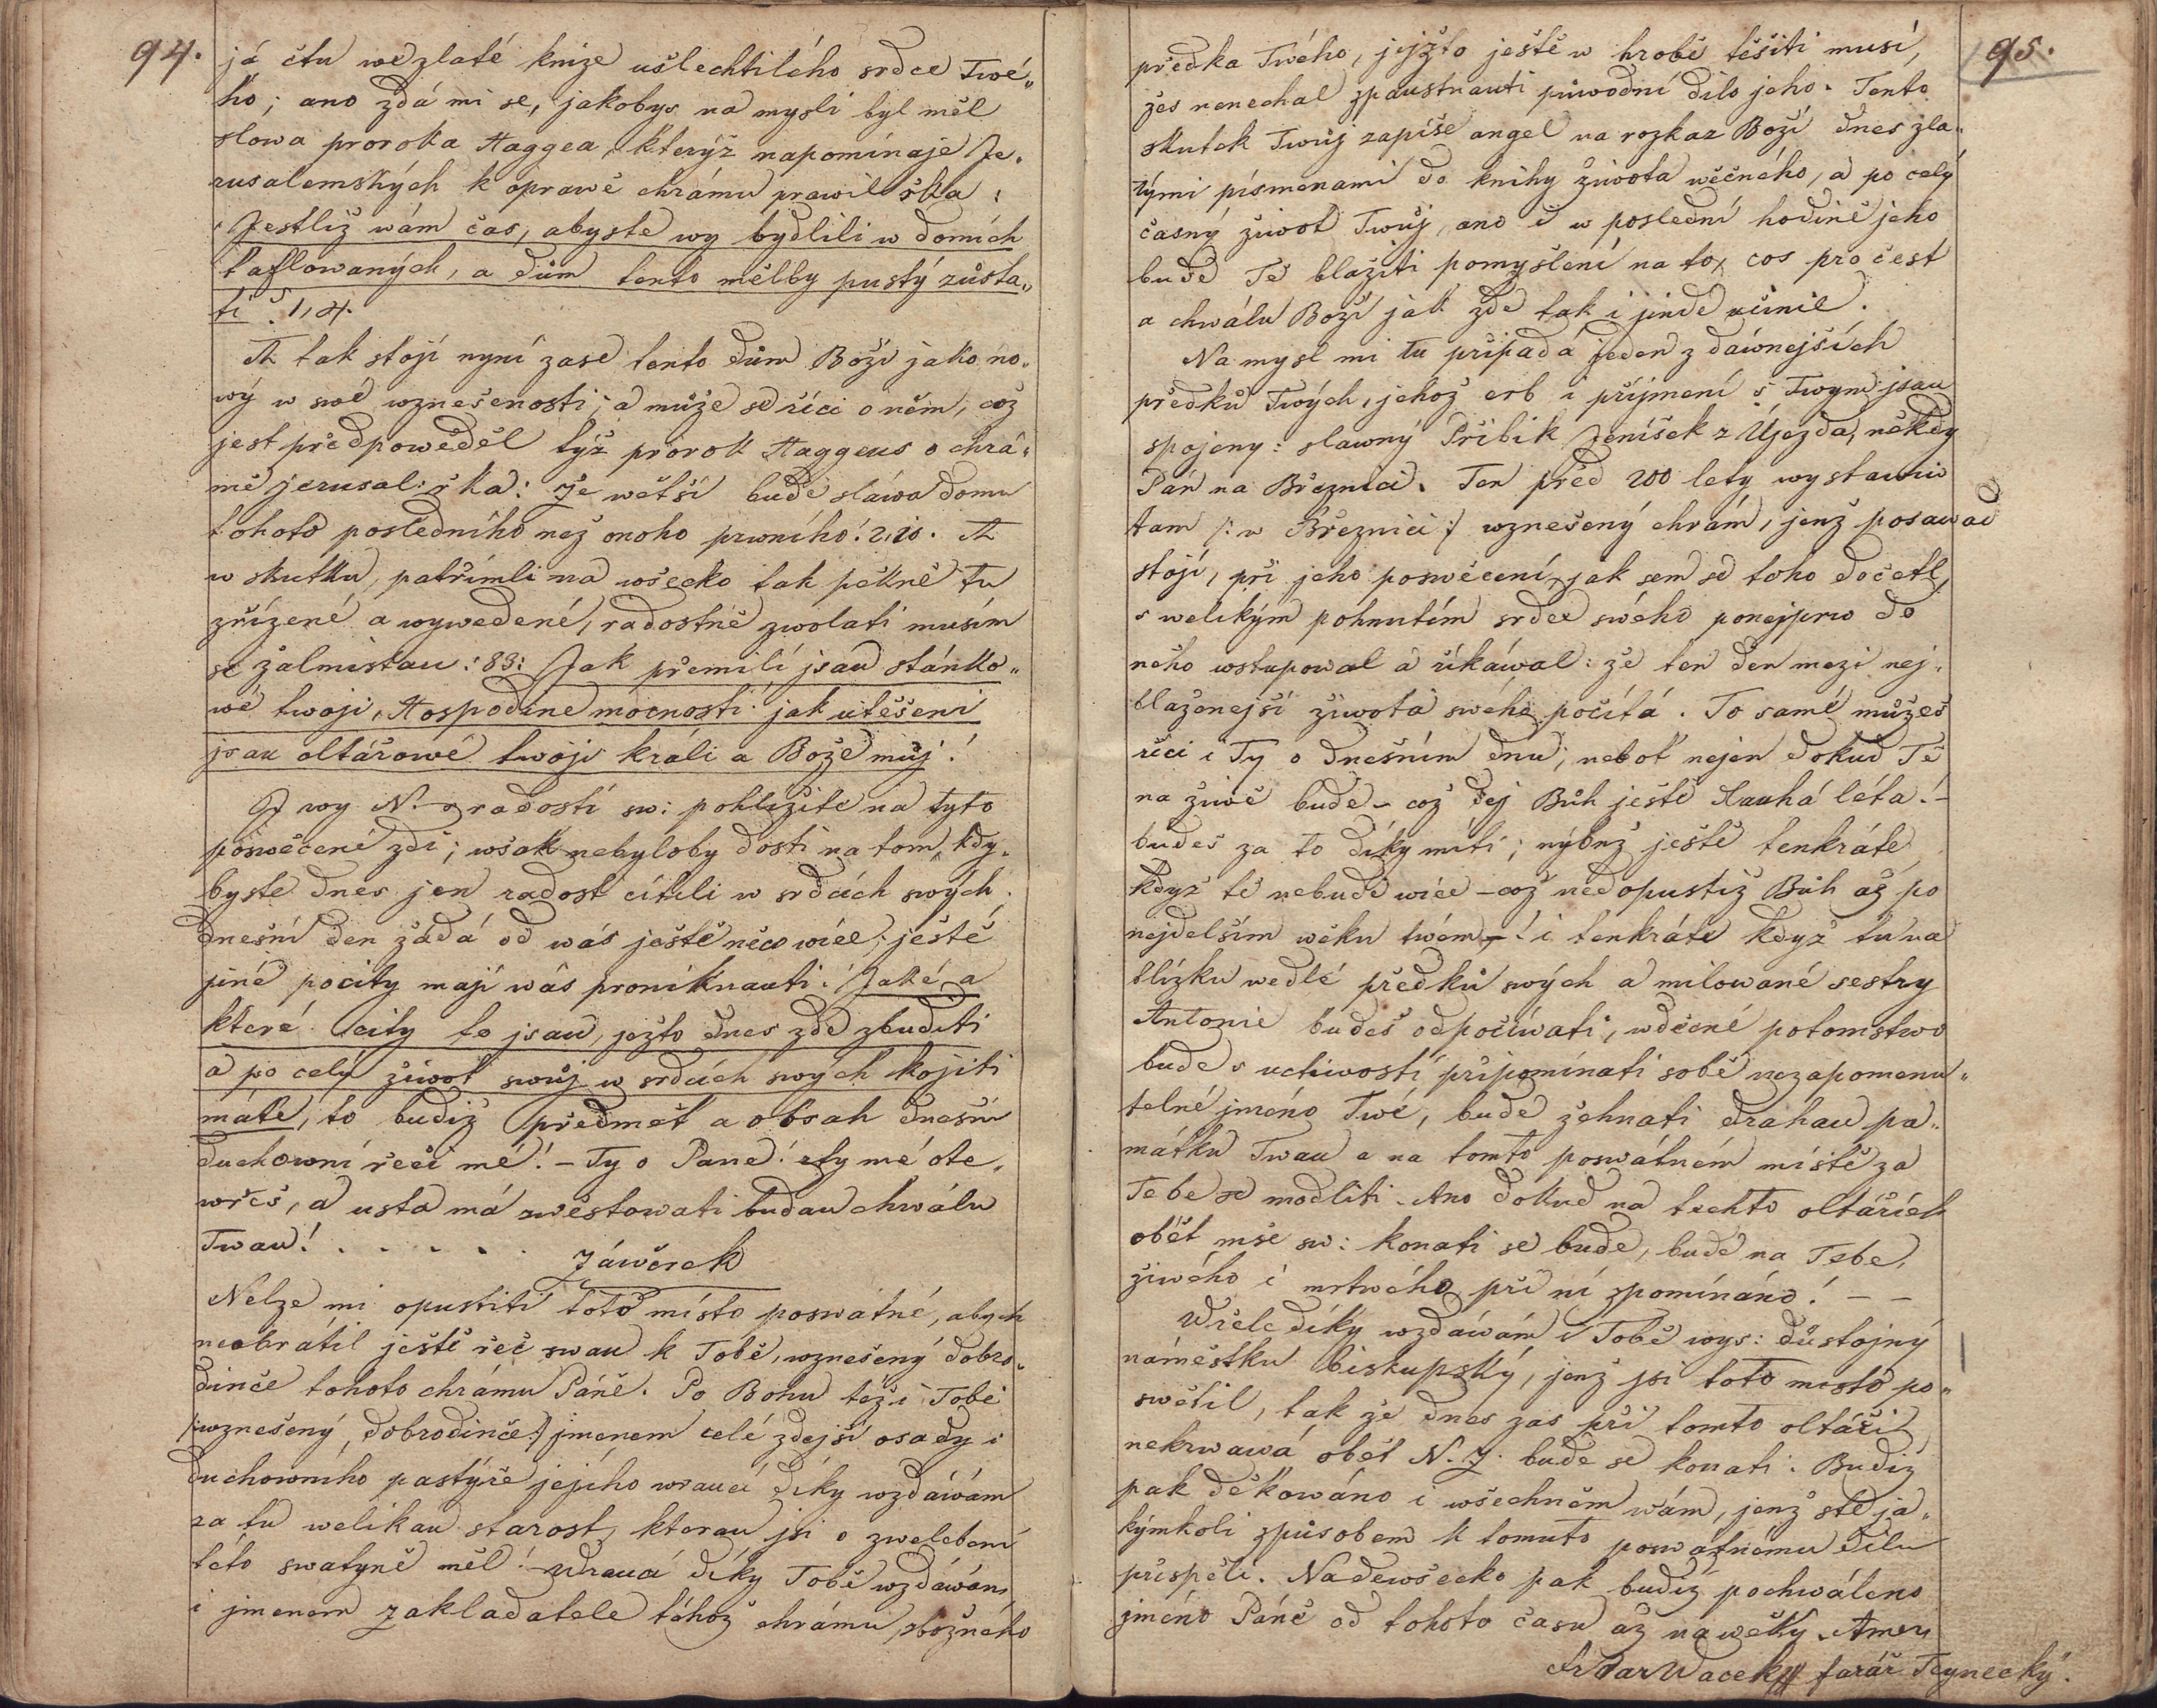 94.
já čtu we zlaté knize ušlechtilého srdce Twé„
ho; ano zdá mi se, jakobys na mysli byl měl
slowa proroka Haggea, kterýž napomínaje Je„
rusalemských k oprawě chrámu prawil řka:
Jestliž wám čas, abyste wy bydlili w domích
taflowaných, a dům tento mělby pustý zůsta„
ti? 1,4.
A tak stojí nyní zase tento dům Boží jako no„
wý w swé wznešenosti; a může se říci o něm, což
jest předpowěděl týž prorok Haggeus o chrá„
mě jerusal: řka: Že wětší bude sláwa domu
tohoto posledního než onoho prwního! 2,10. A
w skutku, patřímli na wšecko tak pěkně tu
zřízené a wywedené, radostně zwolati musím
se žalmistau: 83: Jak přemilí jsau stánko„
wé twoji, Hospodine mocností! jak utěšení
jsau oltářowé twoji králi a Bože můj!
I wy N. z radostí sw: pohlížíte na tyto
poswěcené zdi; wšak nebyloby dosti na tom, kdy„
byste dnes jen radost cítili w srdcích swých.
Dnešní den žádá od wás ještě něco wíce, ještě
jiné pocity mají wás proniknauti! Jaké a
které city to jsau, ježto dnes zde zbuditi
a po celý žiwot swůj w srdcích swých kojiti
máte, to budiž předmět a obsah dnešní
duchowní řeči mé! – Ty o Pane! rty mé ote„
wřeš, a usta má zwěstowati budau chwálu
Twau! . . . . .
Záwěrek
Nelze mi opustiti toto místo poswátné, abych
neobrátil ještě řeč swau k Tobě, wznešený dobro„
dinče tohoto chrámu Páně. Po Bohu též i Tobě
/:wznešený dobrodinče:/ jmenem celé zdejší osady i
duchowního pastýře jejího wraucí díky wzdáwám
za tu welikau starost, kterau jsi o zwelebení
této swatyně měl! – Wraucí díky Tobě wzdáwám
i jmenem zakladatele téhož chrámu, zbožného
95.
předka Twého, jejžto ještě w hrobě těšiti musí,
žes nenechal zpaustnauti půwodní dílo jeho. Tento
skutek Twůj zapíše angel na rozkaz Boží dnes zla„
tými písmenami do knihy žiwota wěčného, a po celý
časný žiwot Twůj, ano i w poslední hodině jeho
bude Tě blažiti pomyšlení na to, cos pro čest
a chwálu Boží jak zde tak i jinde učinil.
Na mysl mi tu připadá jeden z dáwnejších
předků Twých, jehož erb i příjmení s Twým jsau
spojeny: slawný Přibík Jeníšek z Újezda, někdy
Pán na Březnici. Ten před 200 lety wystawiw
tam /: w Březnici :/ wznešený chrám, jenž posawad
stojí, při jeho poswěcení, jak sem se toho dočetl,
s welikým pohnutím srdce swého ponejprw do
něho wstupowal a říkáwal: že ten den mezi nej„
blaženejší žiwota swého počítá. To samé můžeš
říci i Ty o dnešním dnu; neboť nejen dokud Tě
na žiwě bude – což dej Bůh ještě dlauhá léta! –
budeš za to díky míti; nýbrž ještě tenkráte,
když tě nebude wíce – což nedopustiž Bůh až po
nejdelším wěku twém – ! i tenkráte když tu na
blízku wedlé předků swých a milowané sestry
Antonie budeš odpočíwati, wděčné potomstwo
bude s uctiwostí připomínati sobě nezapomenu„
telné jméno Twé, bude žehnati drahau pa„
mátku Twau a na tomto poswátném místě za
Tebe se modliti. Ano dokud na těchto oltářích
oběť mše sw: konati se bude, bude na Tebe,
žiwého i mrtwého při ní zpomínáno! – –
Wřele díky wzdáwám i Tobě wys: důstojný
náměstku biskupský, jenž jsi toto místo po„
swětil, tak že dnes zas při tomto oltáři
nekrwawá oběť N. Z. bude se konati. Budiž
pak děkowáno i wšechněm wám, jenž ste ja„
kýmkoli způsobem k tomuto poswátnému dílu
přispěli. Nadewšecko pak budiž pochwáleno
jméno Páně od tohoto času až na wěky. Amen
Wacek farář Teynecký.